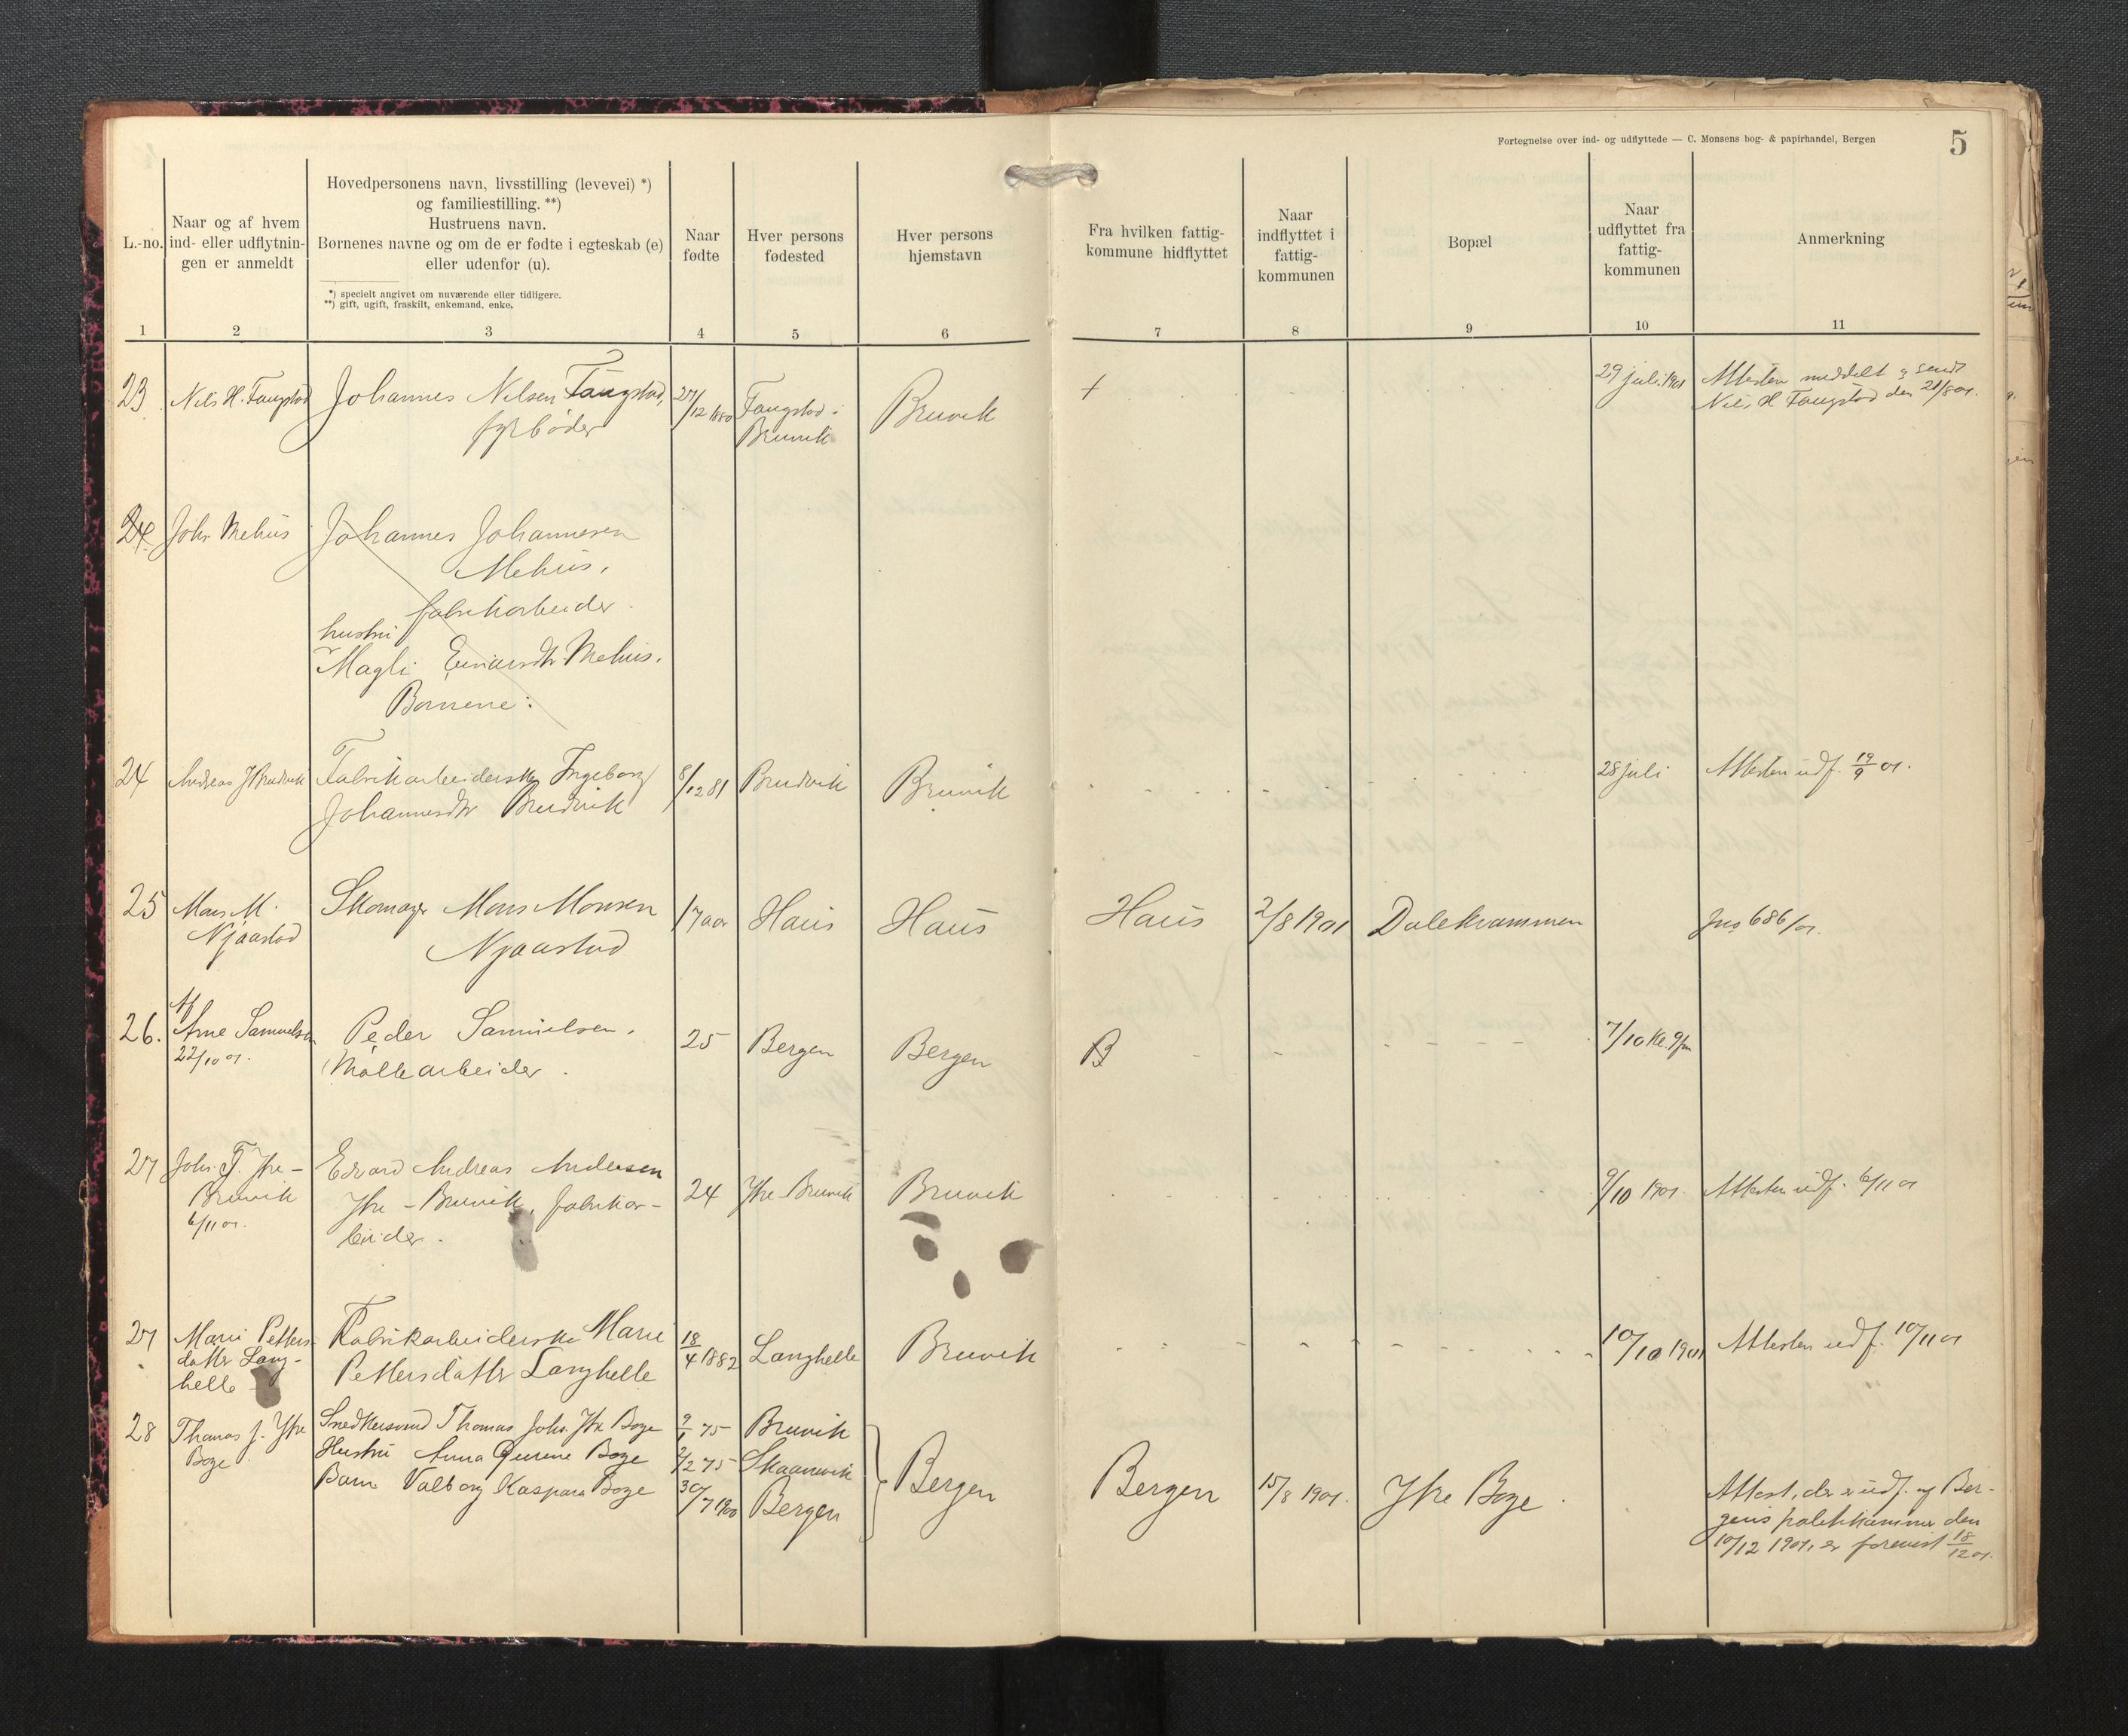 Fortegnelse over ind- og udflyttede — C. Monsens bog- & papirhandel, Bergen
5
L.-no.
Naar og af hvem
ind- eller udflytnin-
gen er anmeldt
Hovedpersonens navn, livsstilling (levevei) *)
og familiestilling. **)
Hustruens navn.
Børnenes navne og om de er fødte i egteskab (e)
eller udenfor (u).
*) specielt angivet om nuværende eller tidligere.
**) gift, ugift, fraskilt, enkemand, enke.
Naar
fødte
Hver persons
fødested
Hver persons
hjemstavn
Fra hvilken fattig-
kommune hidflyttet
Naar
indflyttet i
fattig-
kommunen
Bopæl
Naar
udflyttet fra
fattig-
kommunen
Anmerkning
1 2 3 4 5 6 7 8 9 10 11
23 Nils H. Faugstad Johannes Nilsen Faugstad,
fyrbøder
27/12 1880
Faugstad i
Bruvik
Bruvik
29 juli 1901
Attesten meddelt & sendt
Nils H Faugstad den 21/8 01.
24 Johs Mehus Johannes Johannesen
Mehus,
fabrikarbeider.
hustru
Magli Mehus.
Børnene:
24 Andreas J Brudvik Fabrikarbeiderske Ingeborg
Johannesdtr Brudvik
8/12 81 Brudvik Bruvik 28 juli Attesten udf. 19/9 01.
25 Mons M.
Njaastad
Skomager Mons Monsen
Njaastad
17 aar Haus Haus Haus 2/8 1901 Dalekvammen Jno 686/01.
26. Af
Arne Samuelsen
22/10 01.
Peder Samuelsen.
Møllearbeider.
25 Bergen Bergen B 7/10 kl. 9 fm
27 Johs. J. Ytre-
Bruvik
6/11 01.
Edvard Andreas Andersen
Ytre-Bruvik, fabrikar-
beider.
24 Ytre Bruvik Bruvik 9/10 1901. Attesten udf. 6/11 01
27 Marie Petters-
datter Lang-
helle
Fabrikarbeiderske Marie
Pettersdatter Langhelle
18/4 1882 Langhelle Bruvik 10/10 1901 Attesten udf. 10/11 01
28 Thomas J. Ytre
Boge
Snedkersvend Thomas Johs. Ytre Boge 9/1 75 Bruvik
Hustru Anna Gurine Boge 2/2 75 Skaanevik
Barn Valborg Kaspara Boge 30/7 1900 Bergen
Bergen
Bergen 15/8 1901. Ytre Boge.
Attest, der er udf. af Ber-
gens politikammer den
10/12 1901, er forevist 18/12 01.